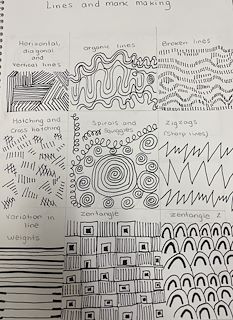 Lines and mark making
Horizontal,
diagonal
and
vertical lines
Organic lines
Broken lines
Hatching and
cross hatching
Spirals and
squiggles
Zigzags
(sharp lines)
Variation in
line
weights
zentangle
zentangle 2